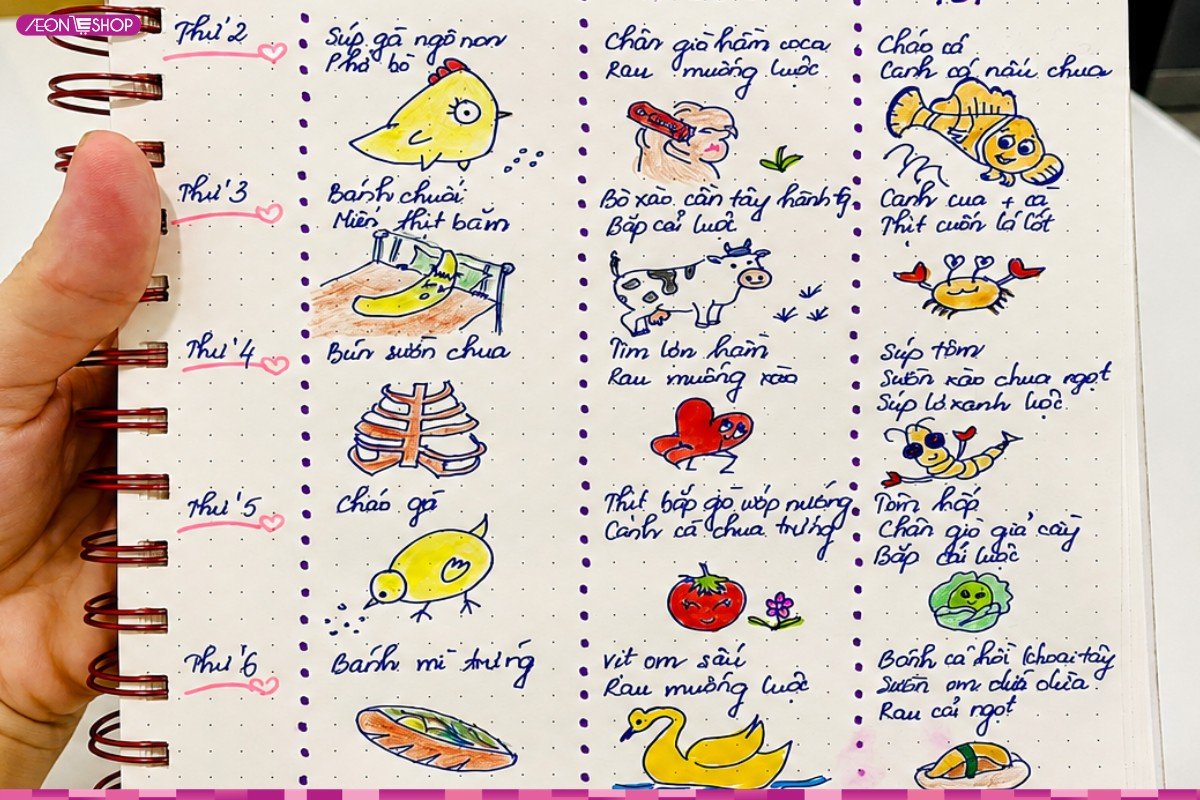 ÆON ESHOP
Thứ 2
Súp gà ngô non
Phở bò
Chân giò hầm coca
Rau muống luộc
Cháo cá
Canh cá nấu chua
Thứ 3
Bánh chuối
Miến thịt bằm
Bò xào cần tây hành tỏ
Bắp cải luộc
Canh cua + cà
Thịt cuốn lá lốt
Thứ 4
Bún sườn chua
Tim lợn hầm
Rau muống xào
Súp tôm
Sườn xào chua ngọt
Súp lơ xanh luộc
Thứ 5
Cháo gà
Thịt bắp giò ướp nướng
Canh cà chua trứng
Tôm hấp
Chân giò giả cầy
Bắp cải luộc
Thứ 6
Bánh mì trứng
Vịt om sấu
Rau muống luộc
Bánh cá hồi khoai tây
Sườn om dứa dừa
Rau cải ngọt